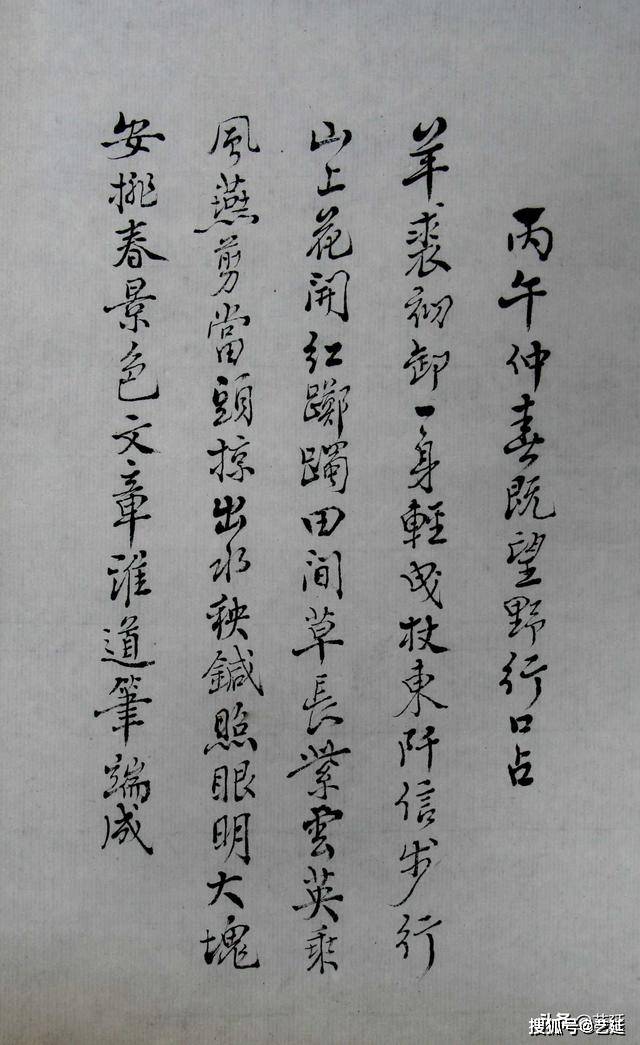 丙午仲春既望野行口占
羊裘初卸一身輕曳杖東阡信步行
山上花開紅躑躅田間草長紫雲英乘
風燕剪當頭掠出水秧鍼照眼明大塊
安排春景色文章誰道筆端成
搜狐号@艺延